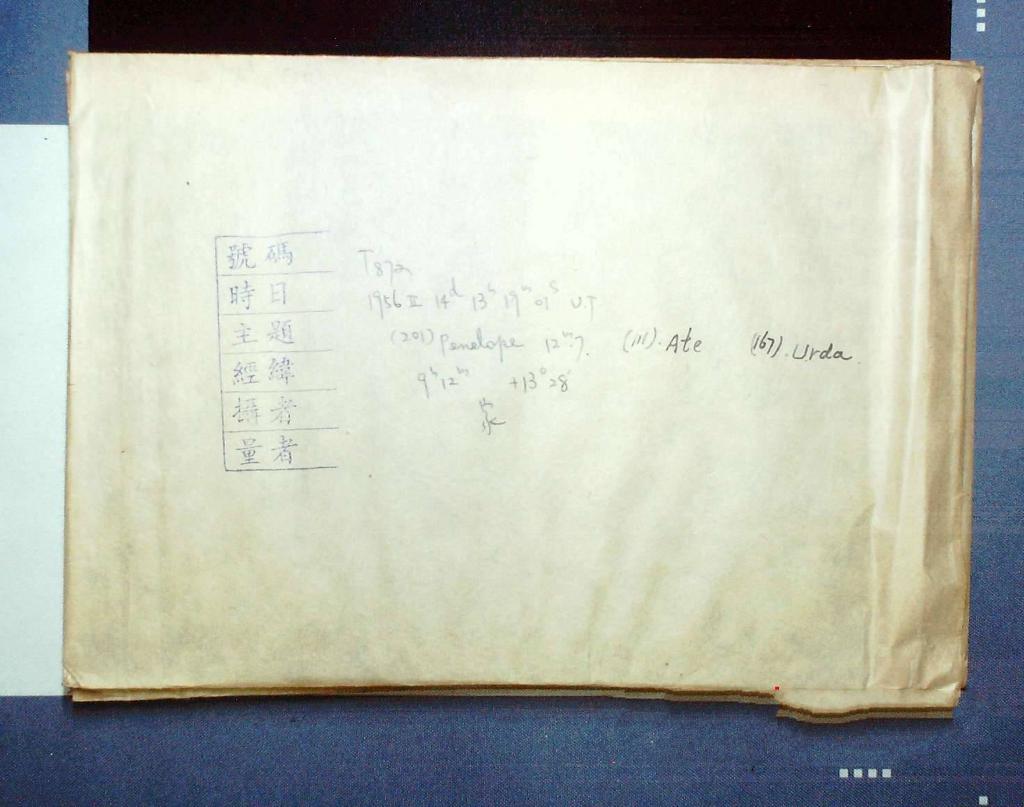 號碼 T872
時日 1956 II 14d 13h 19m 01s U.T
主題 (201) Penelope 12m.7. (111). Ate (167). Urda
經緯 9h 12m +13°28'
攝者
量者